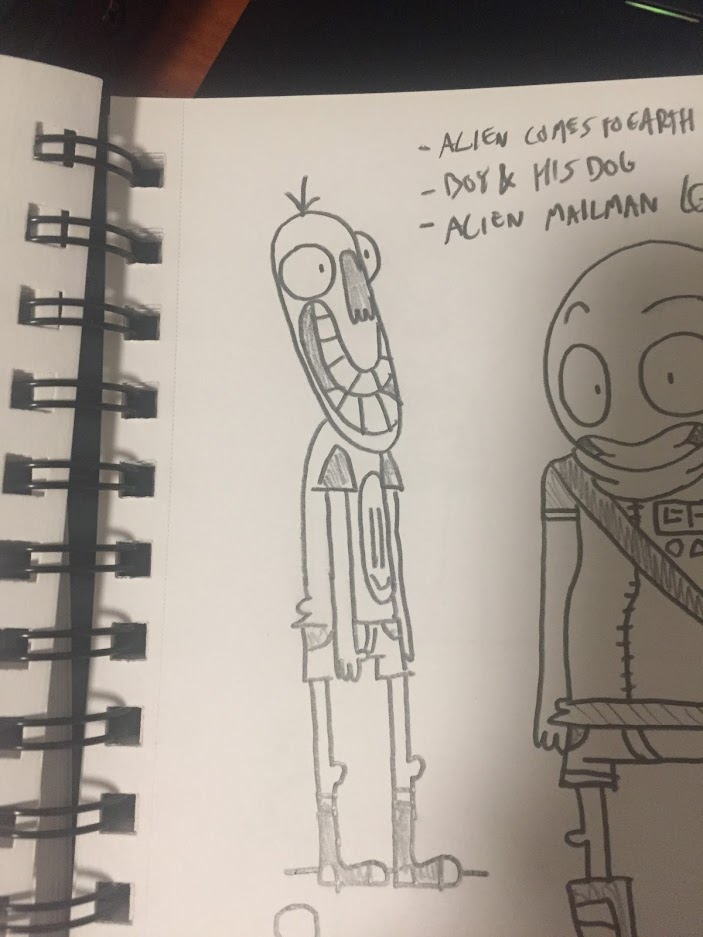 - ALIEN COMES TO EARTH
- BOY & HIS DOG
- ALIEN MAILMAN